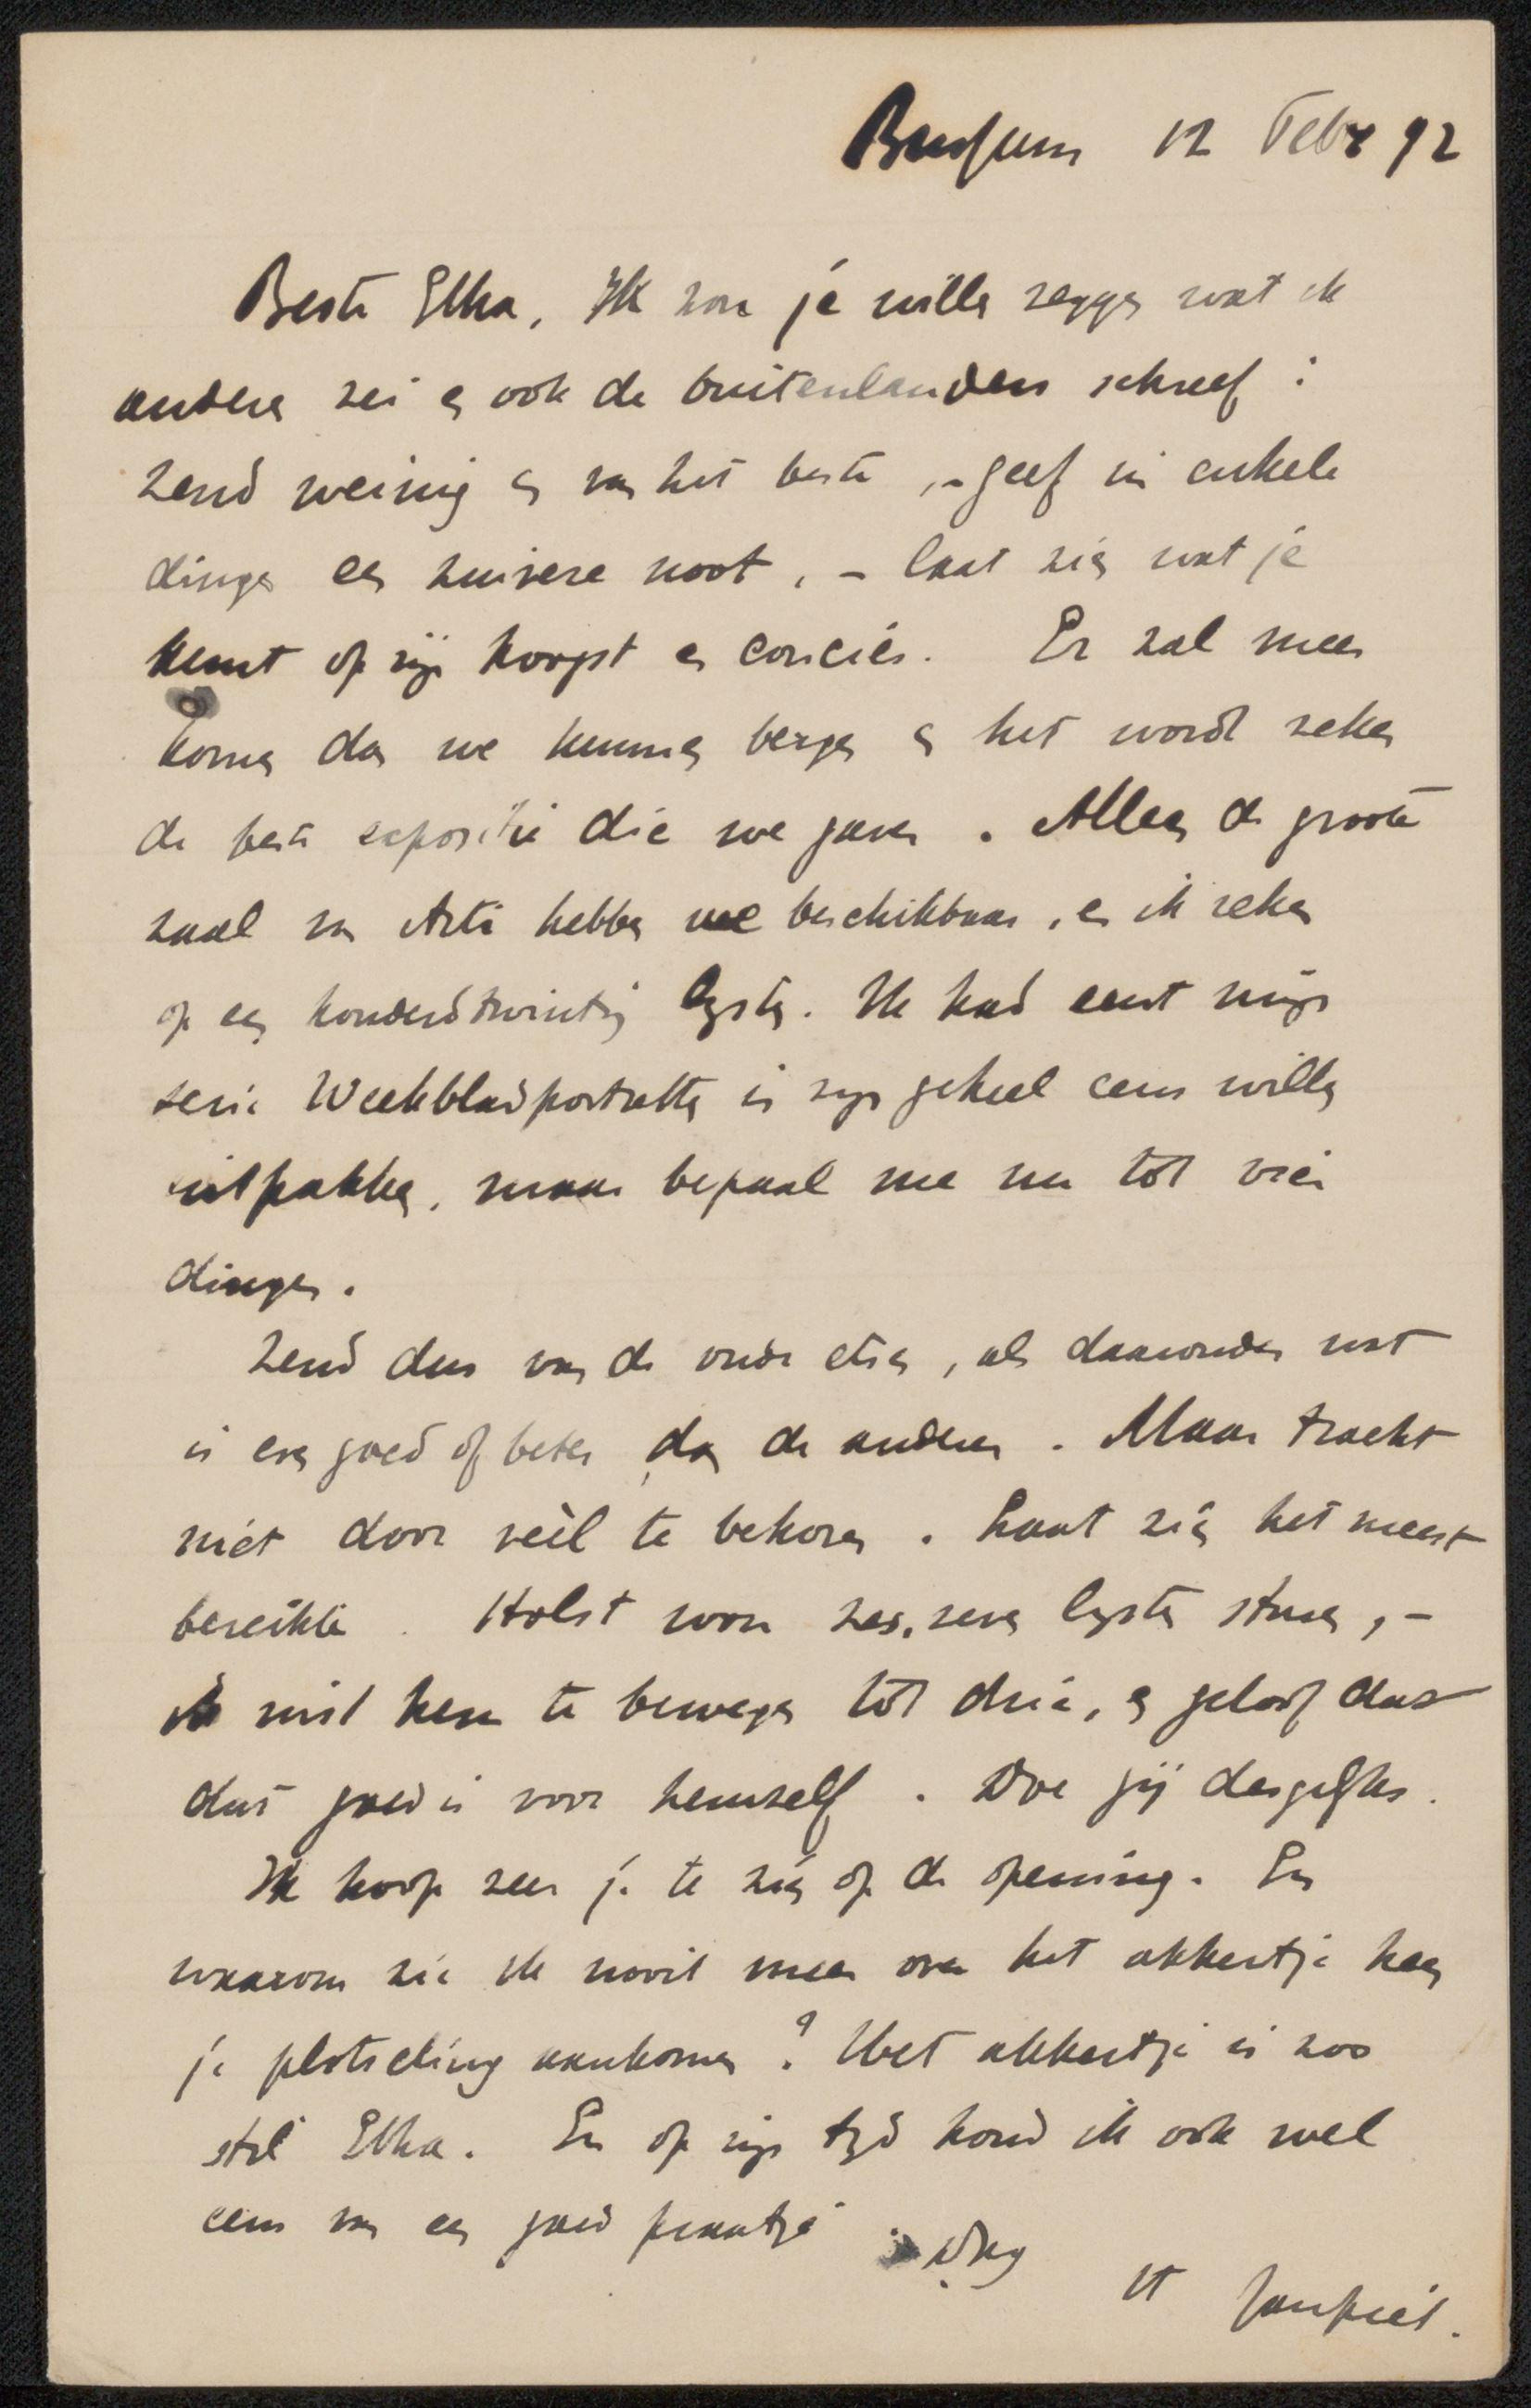 Bussum 12 Febr 92
Beste Elka, Ik zou je willen zeggen wat ik
anderen zei en ook de buitenlanders schreef :
zend weinig en van het beste ,- geef in enkele
dingen een zuivere noot , - laat zien wat je
kunt op zijn hoogst en concies. Er zal meer
komen dan we kunnen bergen en het wordt zeker
de beste expositie die we gaven . Alleen de groote
zaal van Arti hebben we beschikbaar , en ik reken
op een honderdtwintig lysten. Ik had eerst mijn
serie Weekbladportretten in zijn geheel eens willen
uitpakken, maar bepaal me nu tot vier
dingen .
Zend dus van de oude etsen , als daaronder wat
is even goed of beter dan de anderen . Maar tracht
niet door véél te bekoren . Laat zien het meest
bereikte . Holst wou zes, zeven lysten sturen , -
ik wist hem te bewegen tot drie, en geloof dat
dat goed is voor hemzelf . Doe jij desgelyks .
Ik hoop zeer je te zien op de opening. En
waarom zie ik nooit meer over het akkertje heen
je plotseling aankomen ? Het akkertje is zoo
stil Elka. En op zijn tyd houd ik ook wel
eens van een goed praatje . Dag
tt Janpiet .